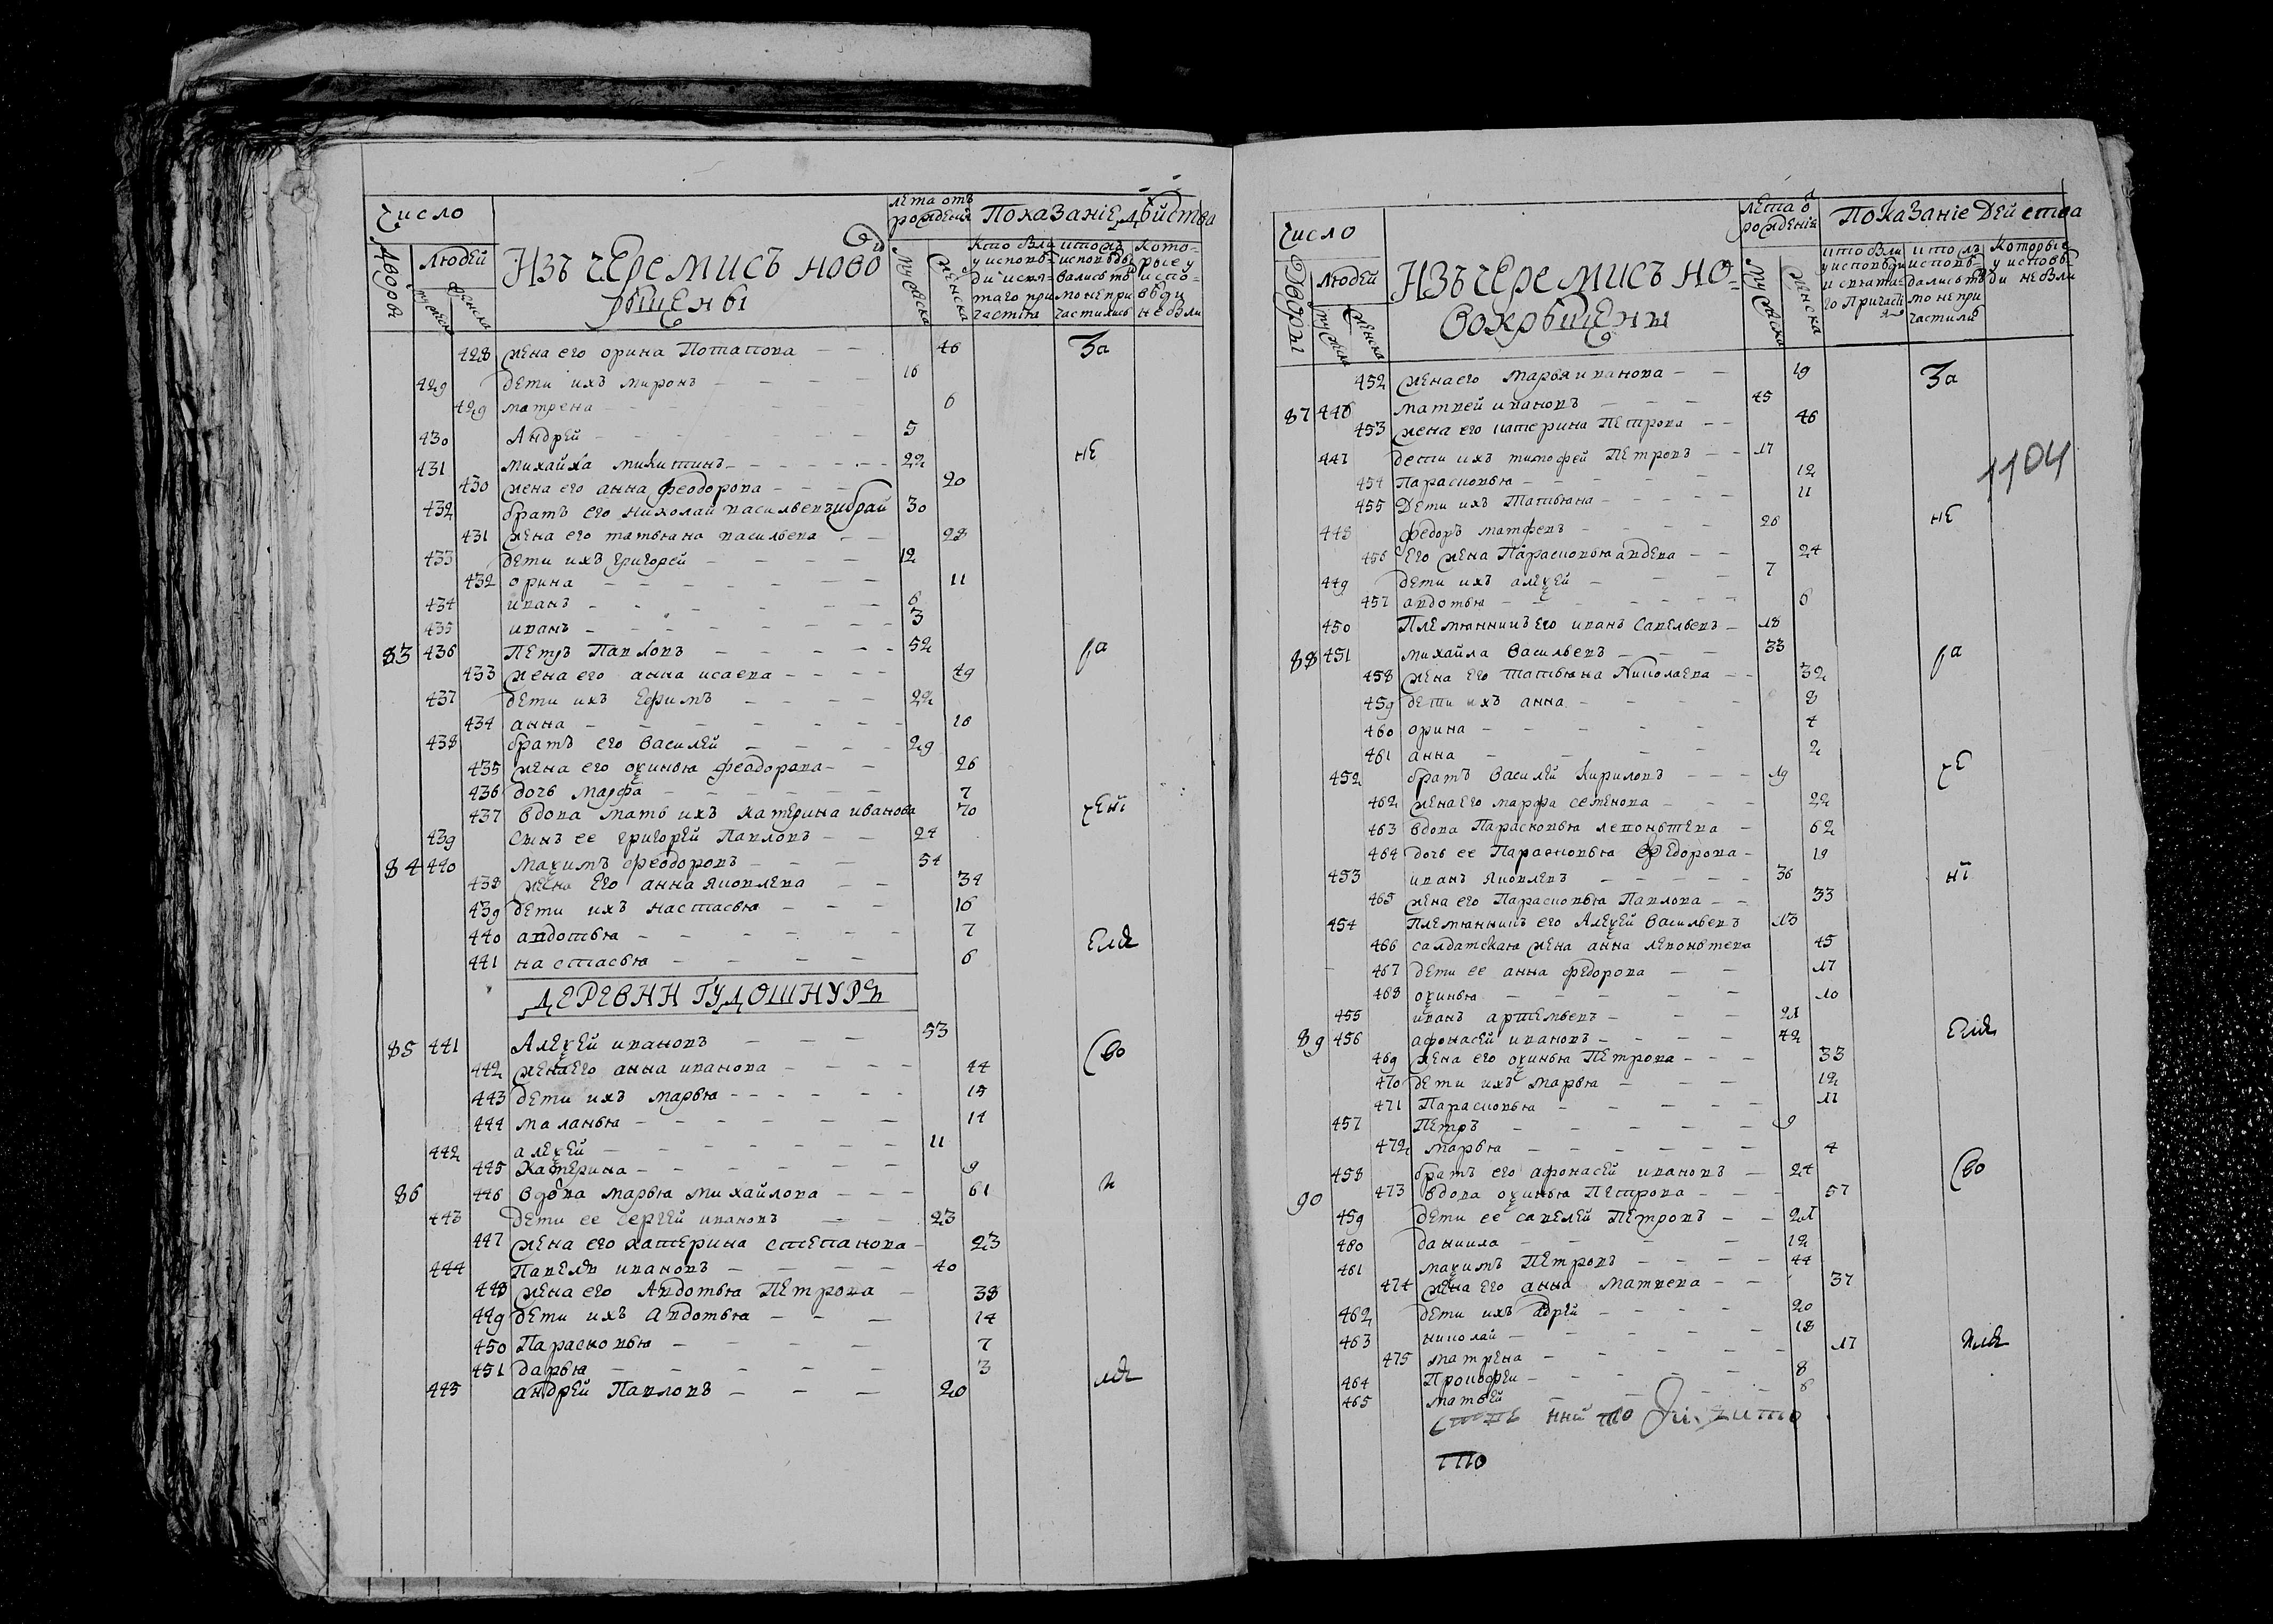 Число
лета отъ рождения
Показание действа
дворов
людей
мужска
женска
Изъ черемисъ ново
крещены
мужска
женска
кто был у исповеди и святаго причастия
кто исповедались то не причастились
которые у исповеди не были
428 жена его орина Потапова — — 46 За
429 дети ихъ миронъ — — — 16
429 матрена — — — 6
430 Андрей — — — 5
431 михайла микитинъ — — — 22 не
430 жена его анна феодорова — — — 20
432 братъ его николай васильевъ 30
431 жена его татьяна васильева — — 28
433 дети ихъ григорей — — — 12
432 орина — — — 11
434 иванъ — — — 6
435 иванъ — — — 3
83 436 Петръ Павловъ — — — 52 ра
433 жена его анна исаева — — — 49
437 дети ихъ Ефимъ — — — 22
434 анна — — — 16
438 братъ его Василей — — — 29
435 жена его оѯинья феодорова — — 26
436 дочь марфа — — — 7
437 вдова мать ихъ катерина иванова 70
439 сынъ ее григорей Павловъ — — 24
84 440 Маѯимъ феодоровъ — — — 54
438 жена Его анна яковлева — — 34
439 дети ихъ настасья — — — 16
440 авдотья — — — 7
441 настасья — — — 6 Еля
ДЕРЕВНИ ГУДОШНУРЪ
85 441 Алеѯей ивановъ — — — 53 Сво
442 жена Его анна иванова — — — 44
443 дети ихъ марья — — — 15
444 маланья — — — 14
442 алеѯей — — — 11
445 Катерина — — — 9
86 446 вдова марья михайлова — — — 61
443 дети ее сергей ивановъ — — 23
447 жена его катерина степанова — 23
444 Павелъ ивановъ — — — 40
448 жена его Авдотья Петрова — 38
449 дети ихъ Авдотья — — — 14
450 Парасковья — — — 7
451 дарья — — — 3
445 андрей Павловъ — — — 20
Число
лета о рождения
Показание действа
Дворы
людей
мужска
женска
Изъ черемисъ но-
вокрещены
мужска
женска
452 жена его марья иванова — — 19 За
87 446 матвей ивановъ — — — 45
453 жена его катерина Петрова — — 46
1104
447 дети ихъ тимофей Петровъ — — 17
454 Парасковья — — — 12
455 Дети ихъ Татьяна — — — 11
448 федоръ матфевъ — — — 26 не
456 Его жена Парасковья авдева — — 24
449 дети ихъ алеѯей — — — 7
457 авдотья — — — 6
450 Племянникъ Его иванъ Савельевъ — 18
88 451 михайла Васильевъ — — — 33 ра
458 жена Его татьяна Николаева — — 32
459 дети ихъ анна — — — 8
460 орина — — — 4
461 анна — — — 2
452 братъ Василей Кириловъ — — — 19
462 жена Его марфа семенова — — — 22
463 вдова Парасковья леоньтева — 62
464 дочь ее Парасковья Федорова — 19
453 иванъ Яковлевъ — — — 36
465 жена его Парасковья Павлова — — 33
454 Племянникъ его Алеѯей Васильевъ 13
466 салдатская жена анна леоньтева 45
467 дети ее анна федорова — — 17
468 оѯинья — — — 10
455 иванъ артемьевъ — — — 21
89 456 афонасей ивановъ — — — 42
469 жена его оѯинья Петрова — — — 33
470 дети ихъ марья — — — 12
471 Парасковья — — — 11
457 Петръ — — — 9
472 марья — — — 4
458 братъ его афонасей ивановъ — 24 Сво
90 473 вдова оѯинья Петрова — — — 57
459 дети ее савелей Петровъ — — 21
460 данила — — — 12
461 маѯимъ Петровъ — — — 44
474 жена его анна матвева — — — 37
462 дети ихъ адрей — — — 20
463 николай — — — 18
475 матрена — — — 17
464 Прокофеи — — — 8
465 матвей — — — 6